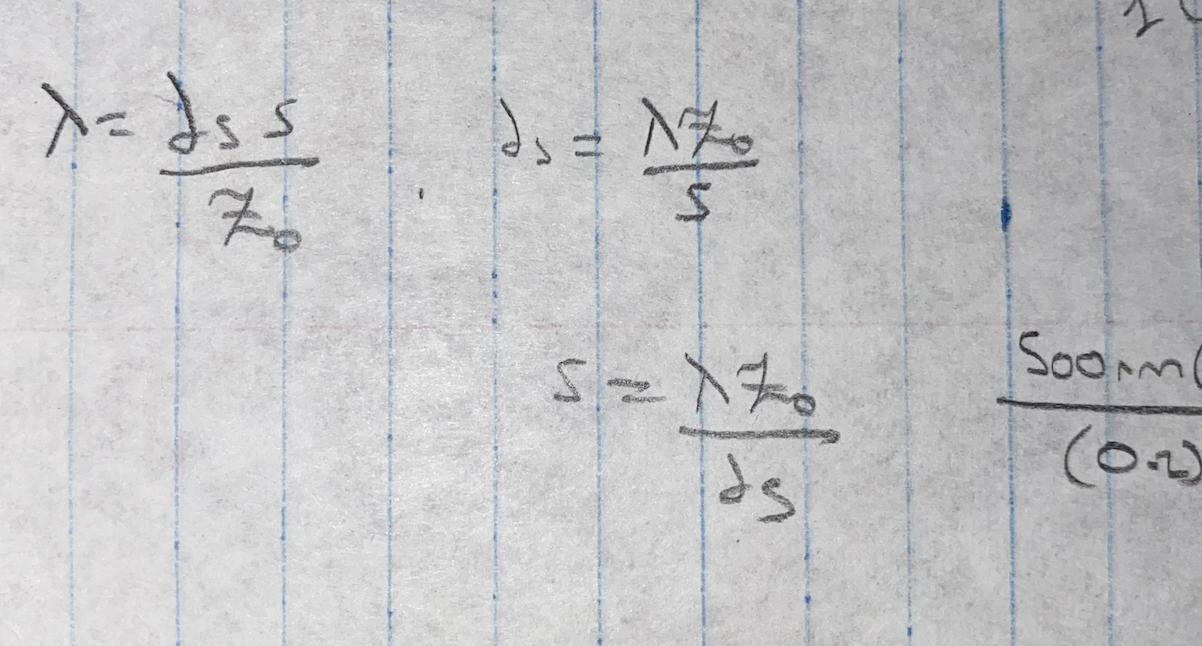 λ = ds s / z₀
ds = λz₀ / s
s = λz₀ / ds
500nm( / (0.2)